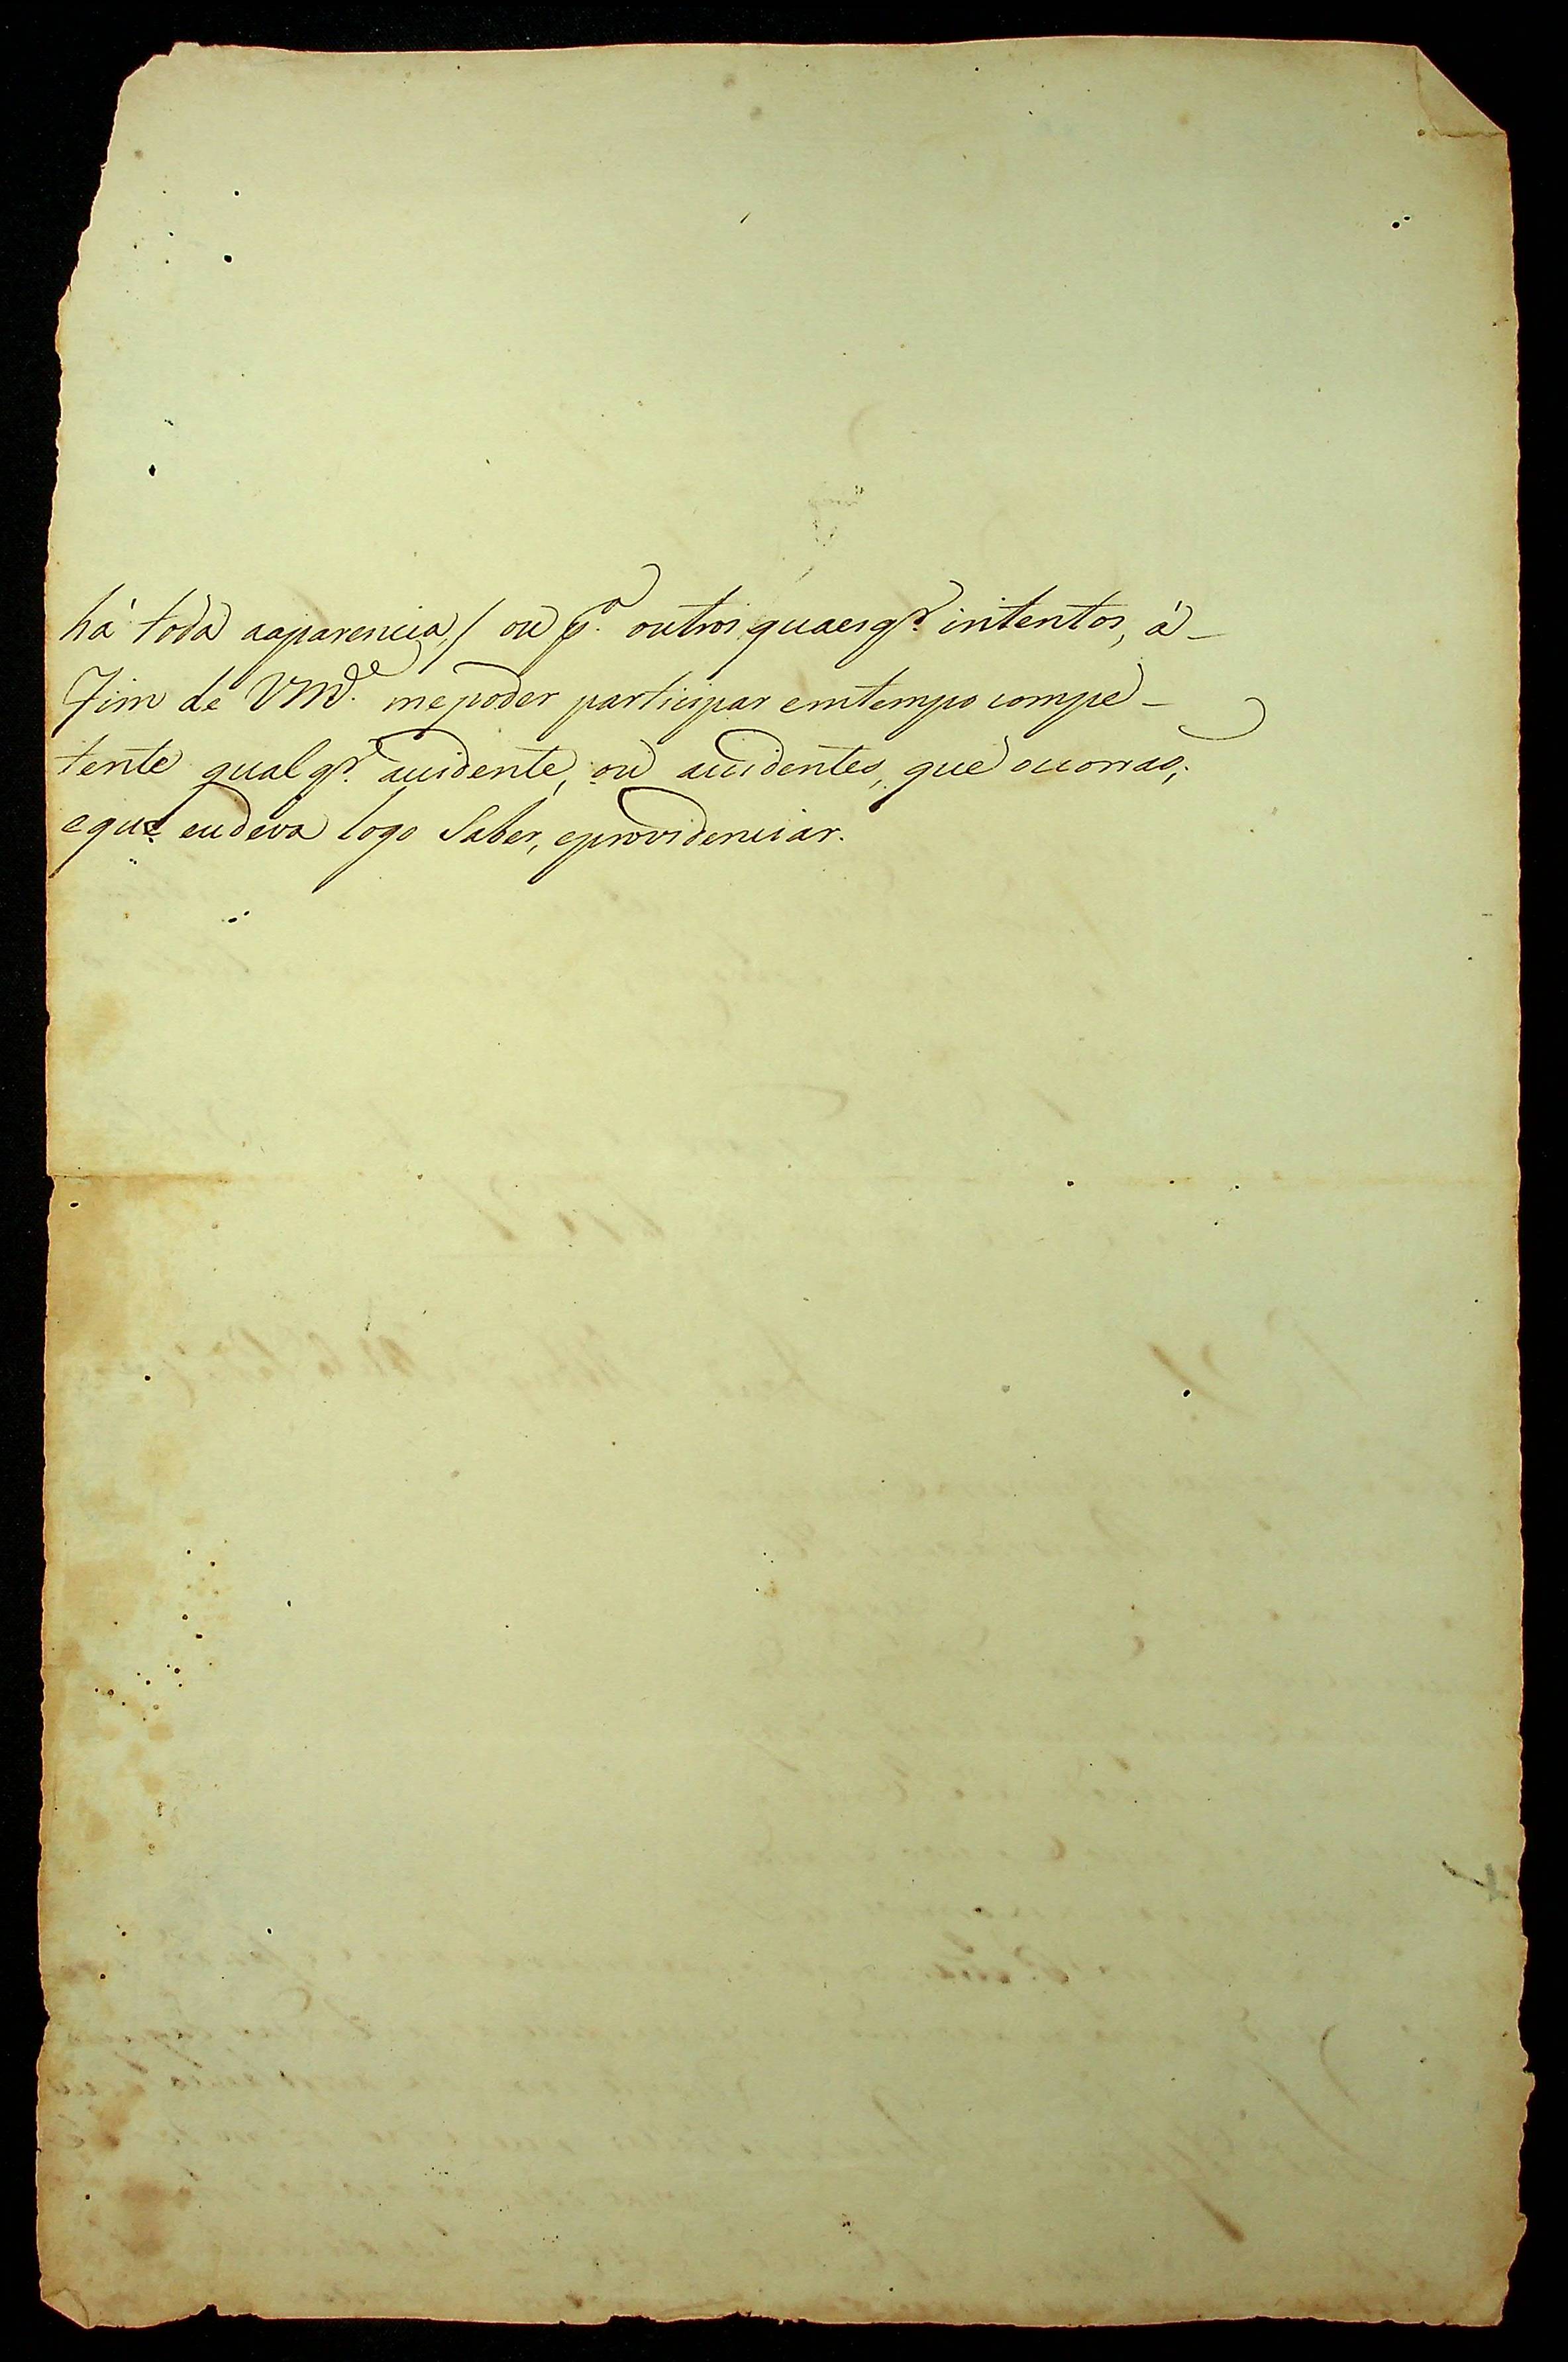 há toda aaparencia,/ ou pª. outros quaesqr. intentos, á-
Fim de VMce. mepoder participar emtempo compe-
tente qualqr. accidente, ou accidentes, que occorrao,
eque eudeva logo Saber, eprovidenciar.